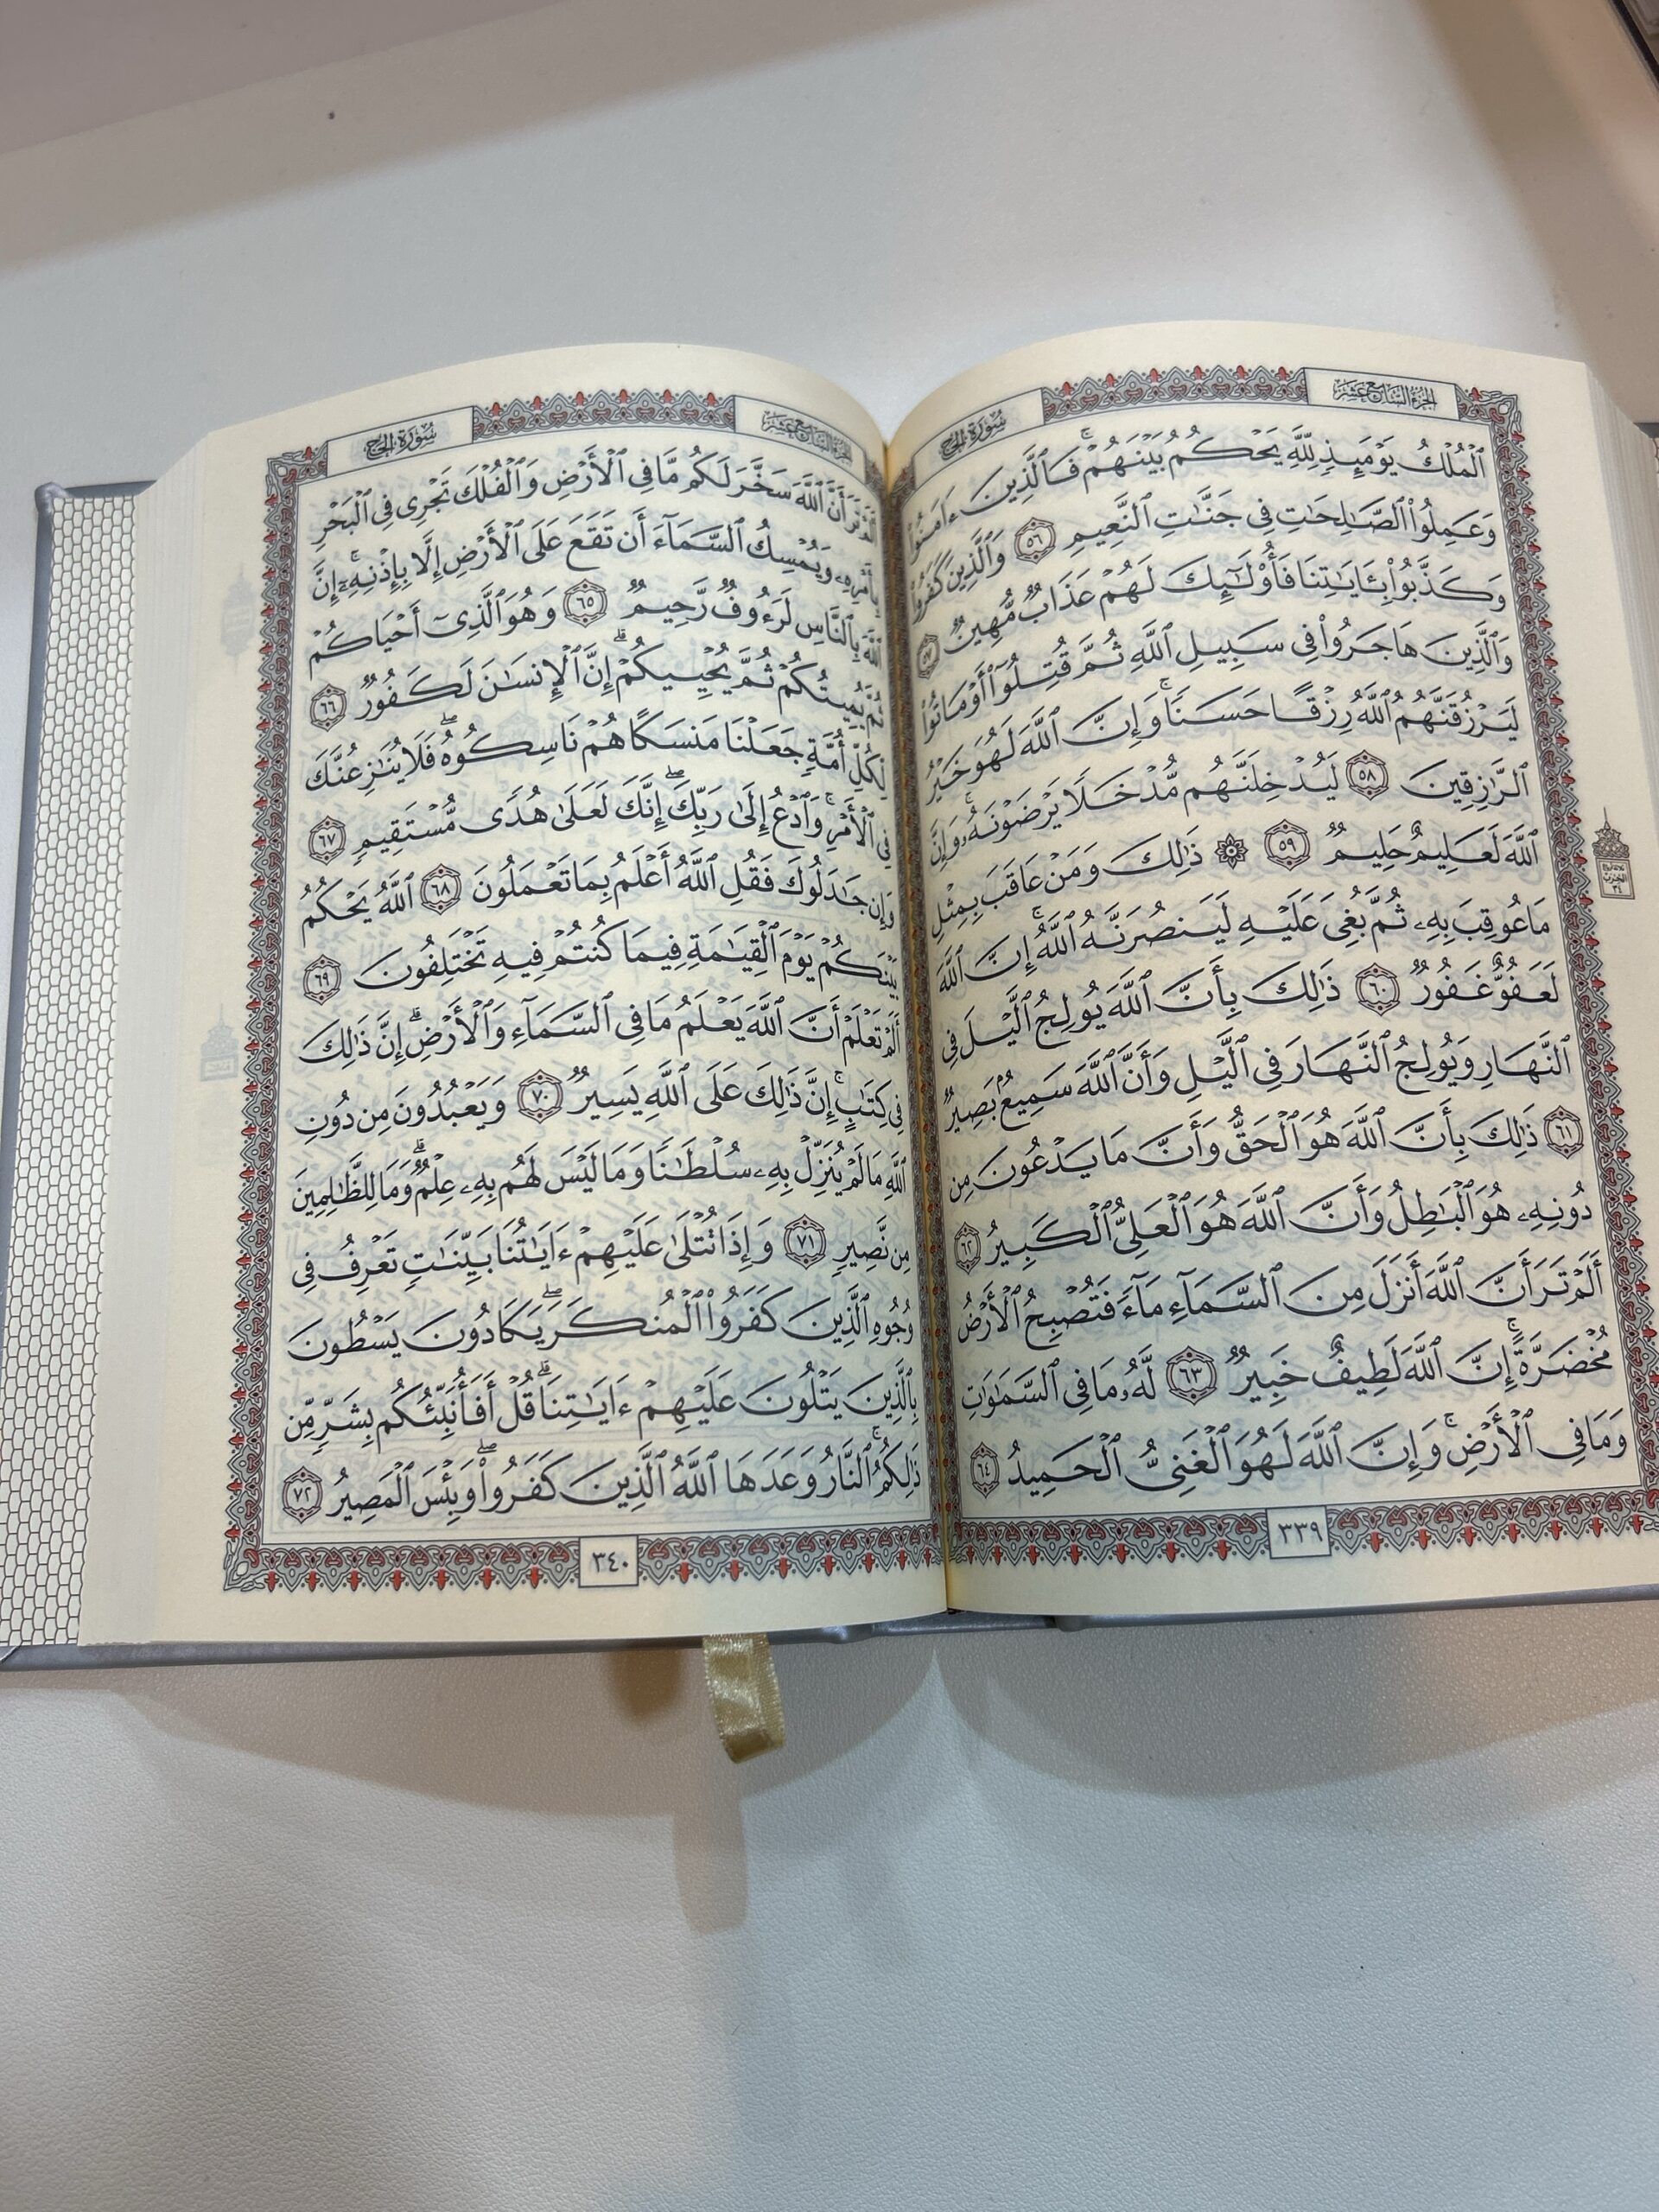 الجزء السابع عشر
سورة الحج
ٱلْمُلْكُ يَوْمَئِذٍ لِّلَّهِ يَحْكُمُ بَيْنَهُمْ ۚ فَٱلَّذِينَ ءَامَنُوا۟
وَعَمِلُوا۟ ٱلصَّـٰلِحَـٰتِ فِى جَنَّـٰتِ ٱلنَّعِيمِ ٥٦ وَٱلَّذِينَ كَفَرُوا۟
وَكَذَّبُوا۟ بِـَٔايَـٰتِنَا فَأُو۟لَـٰٓئِكَ لَهُمْ عَذَابٌ مُّهِينٌ ٥٧
وَٱلَّذِينَ هَاجَرُوا۟ فِى سَبِيلِ ٱللَّهِ ثُمَّ قُتِلُوٓا۟ أَوْ مَاتُوا۟
لَيَرْزُقَنَّهُمُ ٱللَّهُ رِزْقًا حَسَنًا ۚ وَإِنَّ ٱللَّهَ لَهُوَ خَيْرُ
ٱلرَّٰزِقِينَ ٥٨ لَيُدْخِلَنَّهُم مُّدْخَلًا يَرْضَوْنَهُۥ ۗ وَإِنَّ
ٱللَّهَ لَعَلِيمٌ حَلِيمٌ ٥٩ ۞ ذَٰلِكَ وَمَنْ عَاقَبَ بِمِثْلِ
مَا عُوقِبَ بِهِۦ ثُمَّ بُغِىَ عَلَيْهِ لَيَنصُرَنَّهُ ٱللَّهُ ۗ إِنَّ ٱللَّهَ
لَعَفُوٌّ غَفُورٌ ٦٠ ذَٰلِكَ بِأَنَّ ٱللَّهَ يُولِجُ ٱلَّيْلَ فِى
ٱلنَّهَارِ وَيُولِجُ ٱلنَّهَارَ فِى ٱلَّيْلِ وَأَنَّ ٱللَّهَ سَمِيعٌۢ بَصِيرٌ
٦١ ذَٰلِكَ بِأَنَّ ٱللَّهَ هُوَ ٱلْحَقُّ وَأَنَّ مَا يَدْعُونَ مِن
دُونِهِۦ هُوَ ٱلْبَـٰطِلُ وَأَنَّ ٱللَّهَ هُوَ ٱلْعَلِىُّ ٱلْكَبِيرُ ٦٢
أَلَمْ تَرَ أَنَّ ٱللَّهَ أَنزَلَ مِنَ ٱلسَّمَآءِ مَآءً فَتُصْبِحُ ٱلْأَرْضُ
مُخْضَرَّةً ۗ إِنَّ ٱللَّهَ لَطِيفٌ خَبِيرٌ ٦٣ لَّهُۥ مَا فِى ٱلسَّمَـٰوَٰتِ
وَمَا فِى ٱلْأَرْضِ ۗ وَإِنَّ ٱللَّهَ لَهُوَ ٱلْغَنِىُّ ٱلْحَمِيدُ ٦٤
٣٣٩
الحزب
٣٤
الجزء السابع عشر
سورة الحج
أَلَمْ تَرَ أَنَّ ٱللَّهَ سَخَّرَ لَكُم مَّا فِى ٱلْأَرْضِ وَٱلْفُلْكَ تَجْرِى فِى ٱلْبَحْرِ
بِأَمْرِهِۦ وَيُمْسِكُ ٱلسَّمَآءَ أَن تَقَعَ عَلَى ٱلْأَرْضِ إِلَّا بِإِذْنِهِۦٓ ۗ إِنَّ
ٱللَّهَ بِٱلنَّاسِ لَرَءُوفٌ رَّحِيمٌ ٦٥ وَهُوَ ٱلَّذِىٓ أَحْيَاكُمْ
ثُمَّ يُمِيتُكُمْ ثُمَّ يُحْيِيكُمْ ۗ إِنَّ ٱلْإِنسَـٰنَ لَكَفُورٌ ٦٦
لِّكُلِّ أُمَّةٍ جَعَلْنَا مَنسَكًا هُمْ نَاسِكُوهُ ۖ فَلَا يُنَـٰزِعُنَّكَ
فِى ٱلْأَمْرِ ۚ وَٱدْعُ إِلَىٰ رَبِّكَ ۖ إِنَّكَ لَعَلَىٰ هُدًى مُّسْتَقِيمٍ ٦٧
وَإِن جَـٰدَلُوكَ فَقُلِ ٱللَّهُ أَعْلَمُ بِمَا تَعْمَلُونَ ٦٨ ٱللَّهُ يَحْكُمُ
بَيْنَكُمْ يَوْمَ ٱلْقِيَـٰمَةِ فِيمَا كُنتُمْ فِيهِ تَخْتَلِفُونَ ٦٩
أَلَمْ تَعْلَمْ أَنَّ ٱللَّهَ يَعْلَمُ مَا فِى ٱلسَّمَآءِ وَٱلْأَرْضِ ۗ إِنَّ ذَٰلِكَ
فِى كِتَـٰبٍ ۚ إِنَّ ذَٰلِكَ عَلَى ٱللَّهِ يَسِيرٌ ٧٠ وَيَعْبُدُونَ مِن دُونِ
ٱللَّهِ مَا لَمْ يُنَزِّلْ بِهِۦ سُلْطَـٰنًا وَمَا لَيْسَ لَهُم بِهِۦ عِلْمٌ ۗ وَمَا لِلظَّـٰلِمِينَ
مِن نَّصِيرٍ ٧١ وَإِذَا تُتْلَىٰ عَلَيْهِمْ ءَايَـٰتُنَا بَيِّنَـٰتٍ تَعْرِفُ فِى
وُجُوهِ ٱلَّذِينَ كَفَرُوا۟ ٱلْمُنكَرَ ۖ يَكَادُونَ يَسْطُونَ
بِٱلَّذِينَ يَتْلُونَ عَلَيْهِمْ ءَايَـٰتِنَا ۗ قُلْ أَفَأُنَبِّئُكُم بِشَرٍّ مِّن
ذَٰلِكُمُ ۗ ٱلنَّارُ وَعَدَهَا ٱللَّهُ ٱلَّذِينَ كَفَرُوا۟ ۖ وَبِئْسَ ٱلْمَصِيرُ ٧٢
٣٤٠